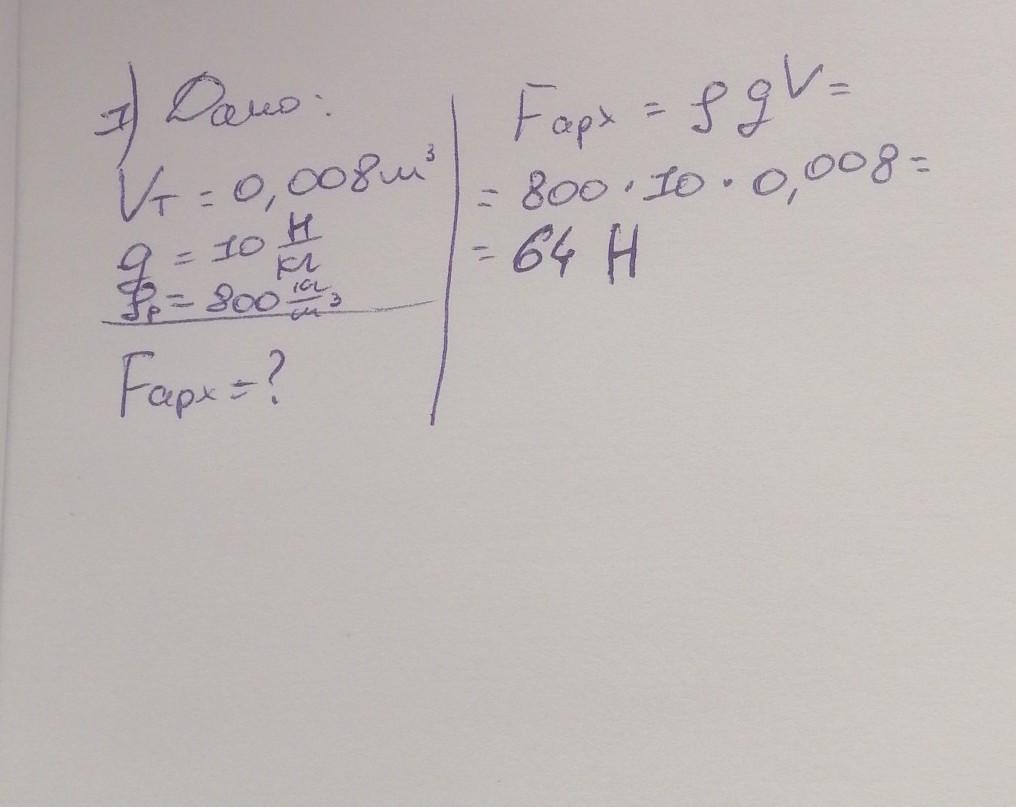 1) Дано:
Vт = 0,008 м³
g = 10 Н/кг
ρр = 800 кг/м³
Fарх = ?
Fарх = ρgV =
= 800 · 10 · 0,008 =
= 64 Н